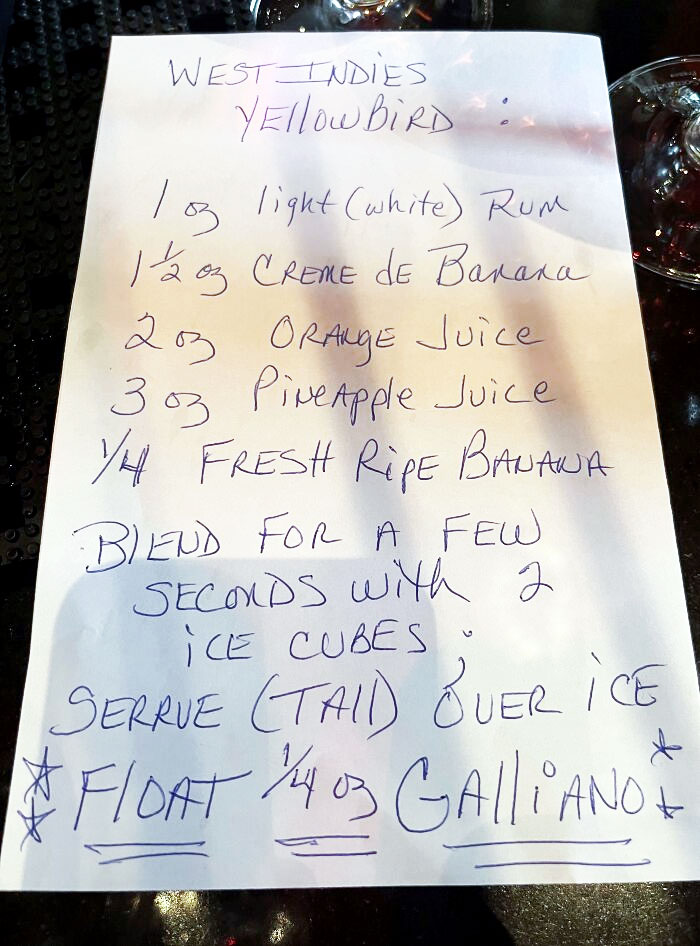 WEST INDIES
YEllOWBIRD :
1 oz light (white) RUM
1 1/2 oz CREME dE Banana
2 oz ORANGE Juice
3 oz PiNEApple Juice
1/4 FRESH RipE BANANA
BlEND FOR A FEW
SECONDS with 2
iCE CUBES ;
SERRVE (TAll) OVER iCE
* * FlOAT 1/4 oz GAlliANO * *